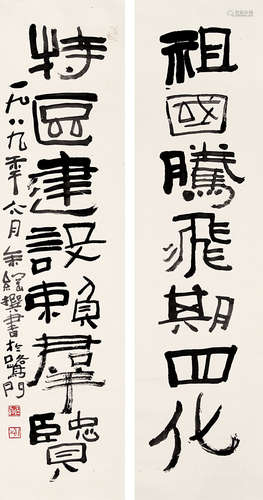 祖國騰飛期四化
特區建設賴羣賢
一九八九年六月余綱撰書於鷺門